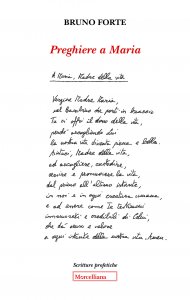 BRUNO FORTE
Preghiere a Maria
A Maria, Madre della vita
Vergine Madre Maria,
nel Bambino che porti in braccio
Tu ci offri il dono della vita,
perché accogliendo Lui
la nostra vita diventi piena e bella.
Aiutaci, Madre della vita,
ad accogliere, custodire,
servire e promuovere la vita,
dal primo all'ultimo istante,
in noi e in ogni creatura umana,
e ad essere come Te testimoni
innamorati e credibili di Colui,
che dà senso e valore
a ogni istante della nostra vita umana.
Scritture profetiche
Morcelliana